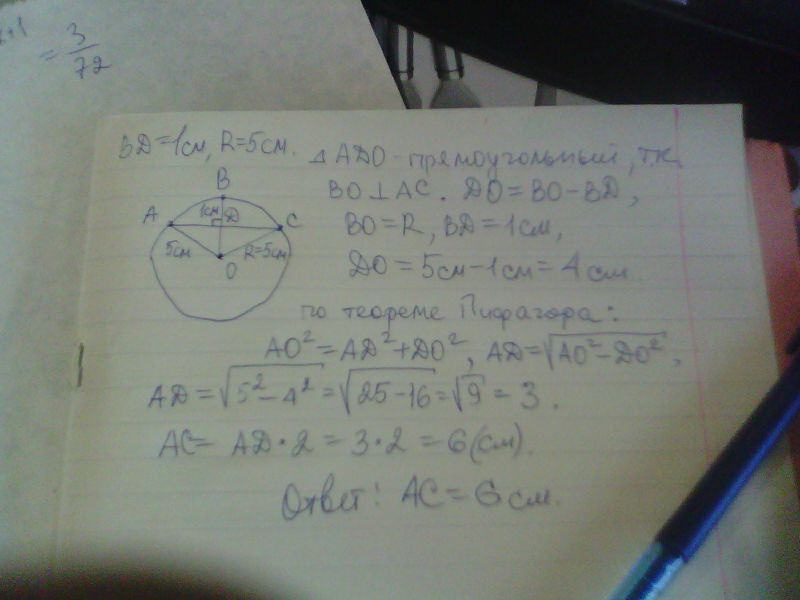 x+1
= 3/72
BD=1см, R=5см.
△ ADO - прямоугольный, т.к.
BO ⊥ AC. DO = BO - BD,
BO = R, BD = 1см,
DO = 5см - 1см = 4см
B
1см
D
A
C
5см
R=5см
O
по теореме Пифагора:
AO² = AD² + DO², AD = √AO² - DO²,
AD = √5² - 4² = √25 - 16 = √9 = 3.
AC = AD · 2 = 3 · 2 = 6(см).
Ответ: AC = 6см.